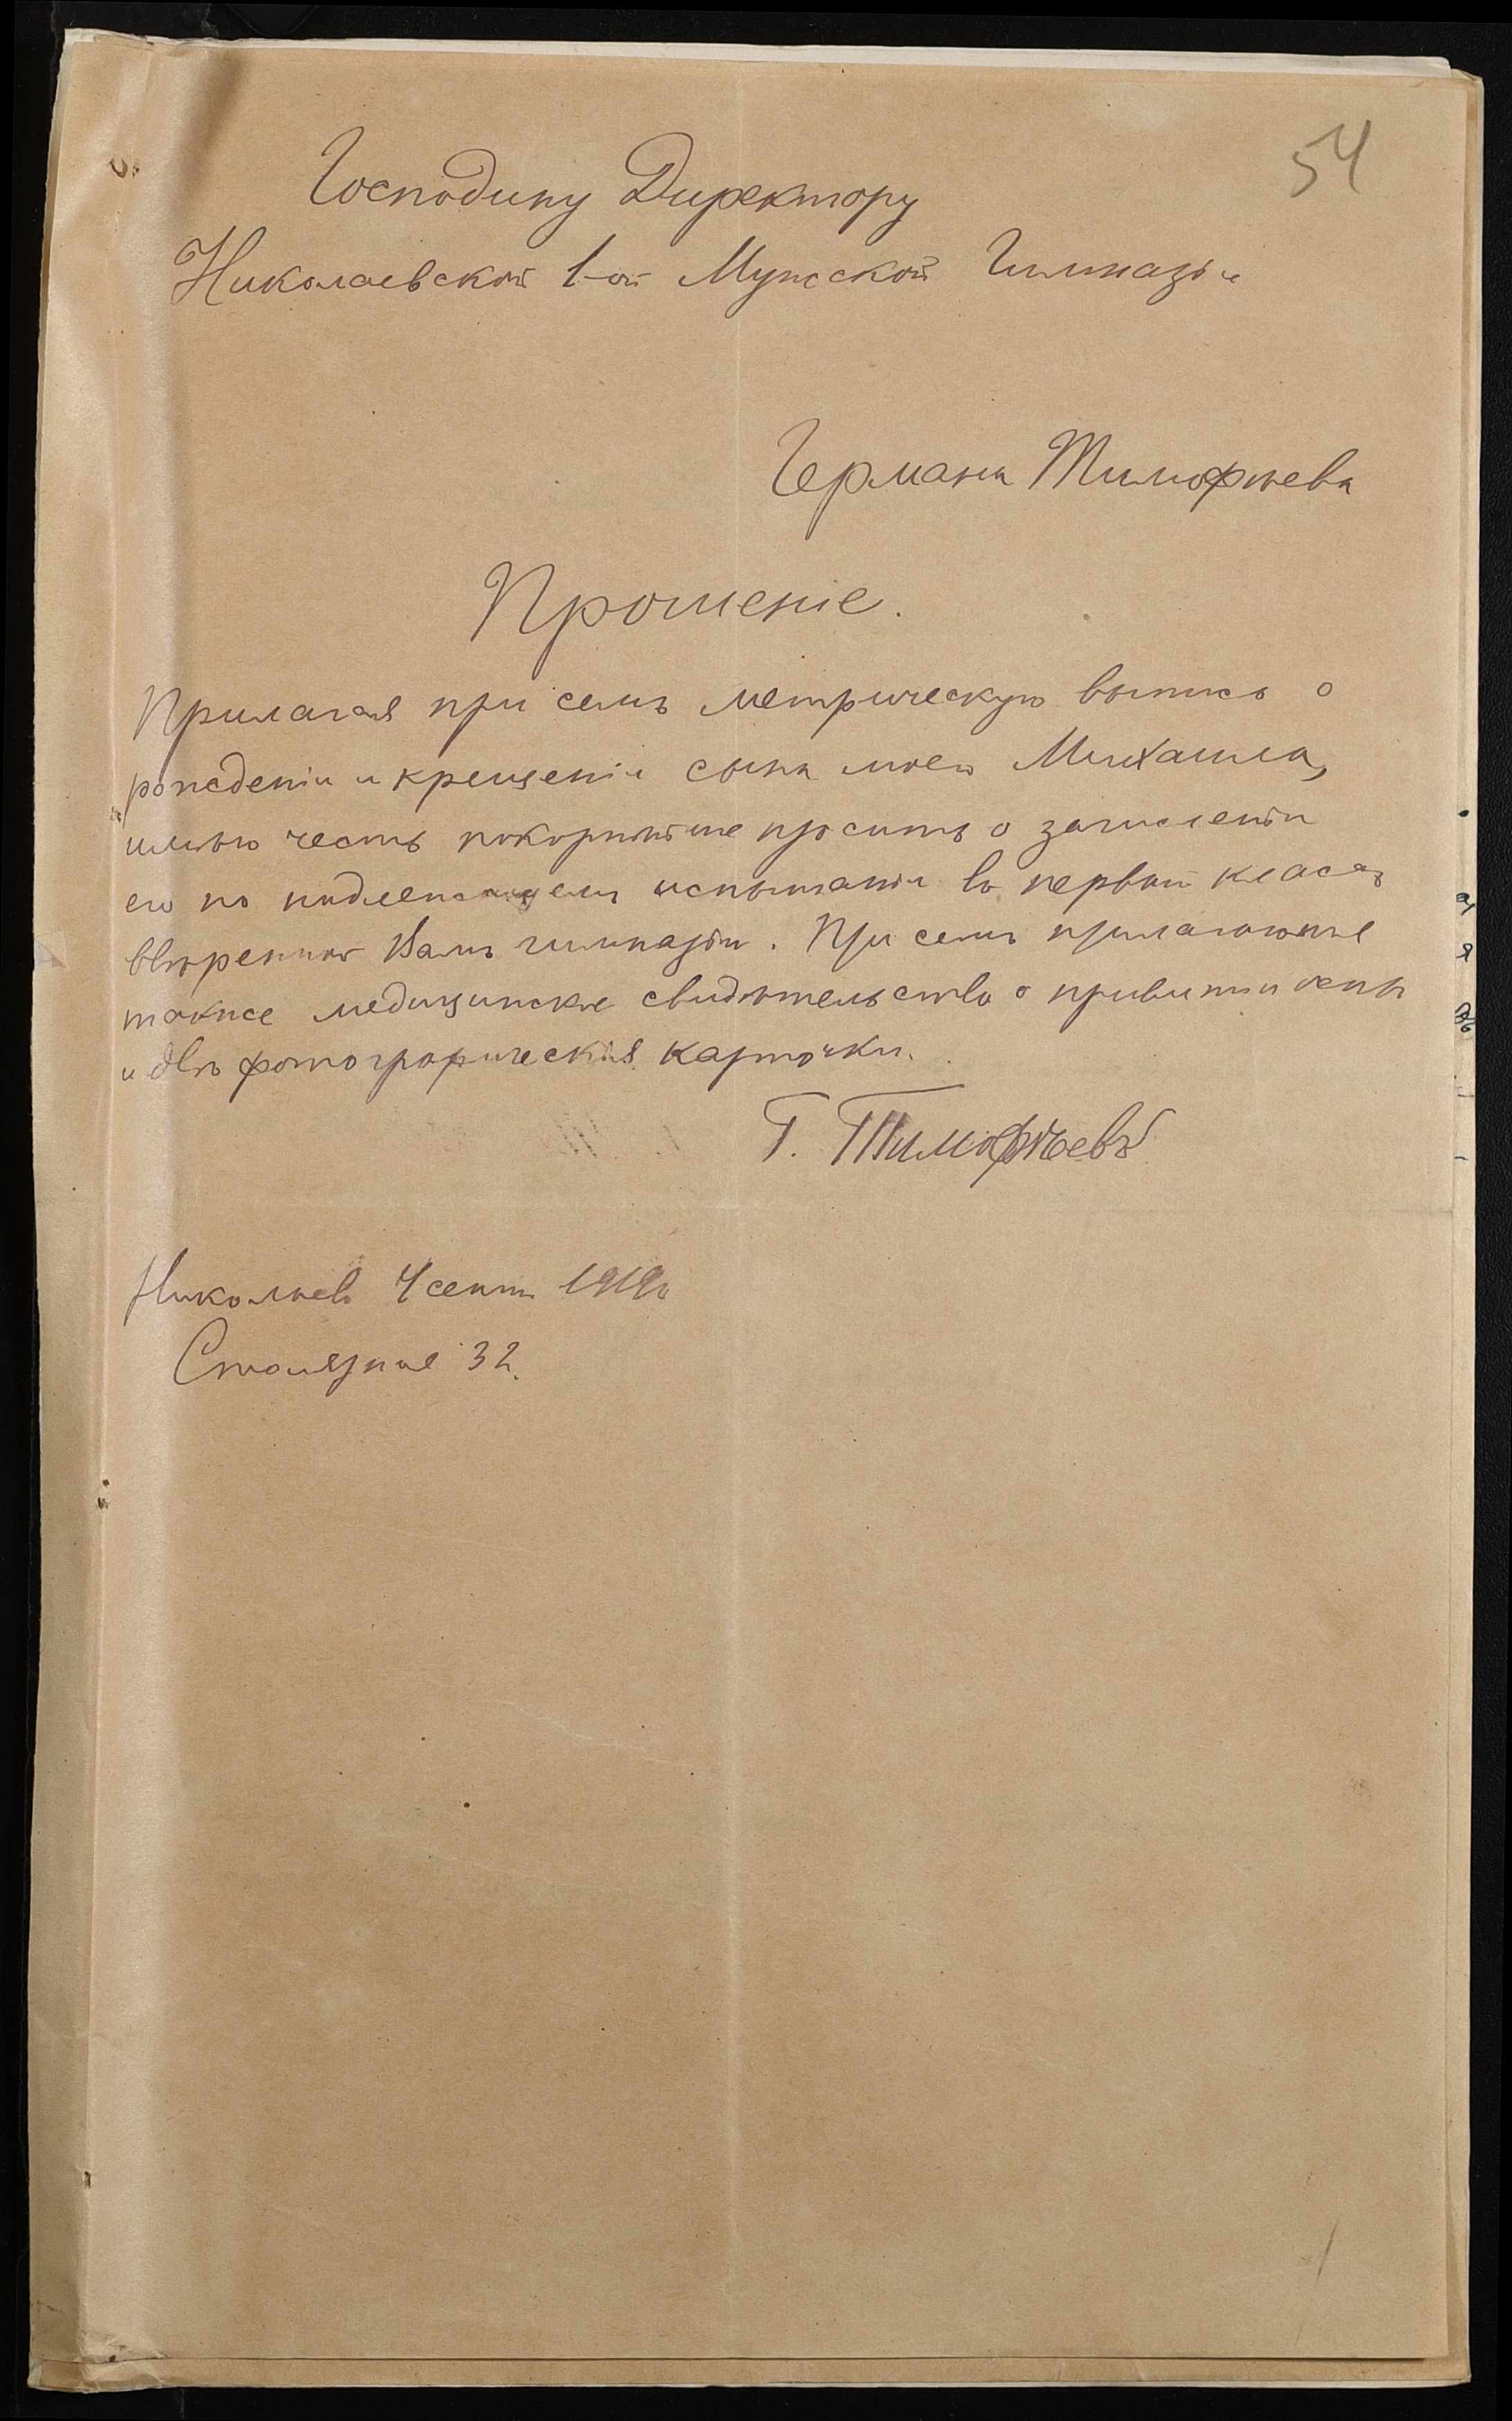 54
Господину Директору
Николаевской 1-ой Мужской Гимназіи
Германа Тимофѣева
Прошеніе.
Прилагая при семъ метрическую выпись о
рожденіи и крещеніи сына моего Михаила,
имѣю честь покорнѣйше просить о зачисленіи
его по надлежащемъ испытаніи въ первый классъ
ввѣренной Вамъ гимназіи. При семъ прилагаются
также медицинское свидѣтельство о привитіи оспы
и двѣ фотографическія карточки.
Г. Тимофѣевъ
Николаев 4 сент 1919г
Столярная 32.